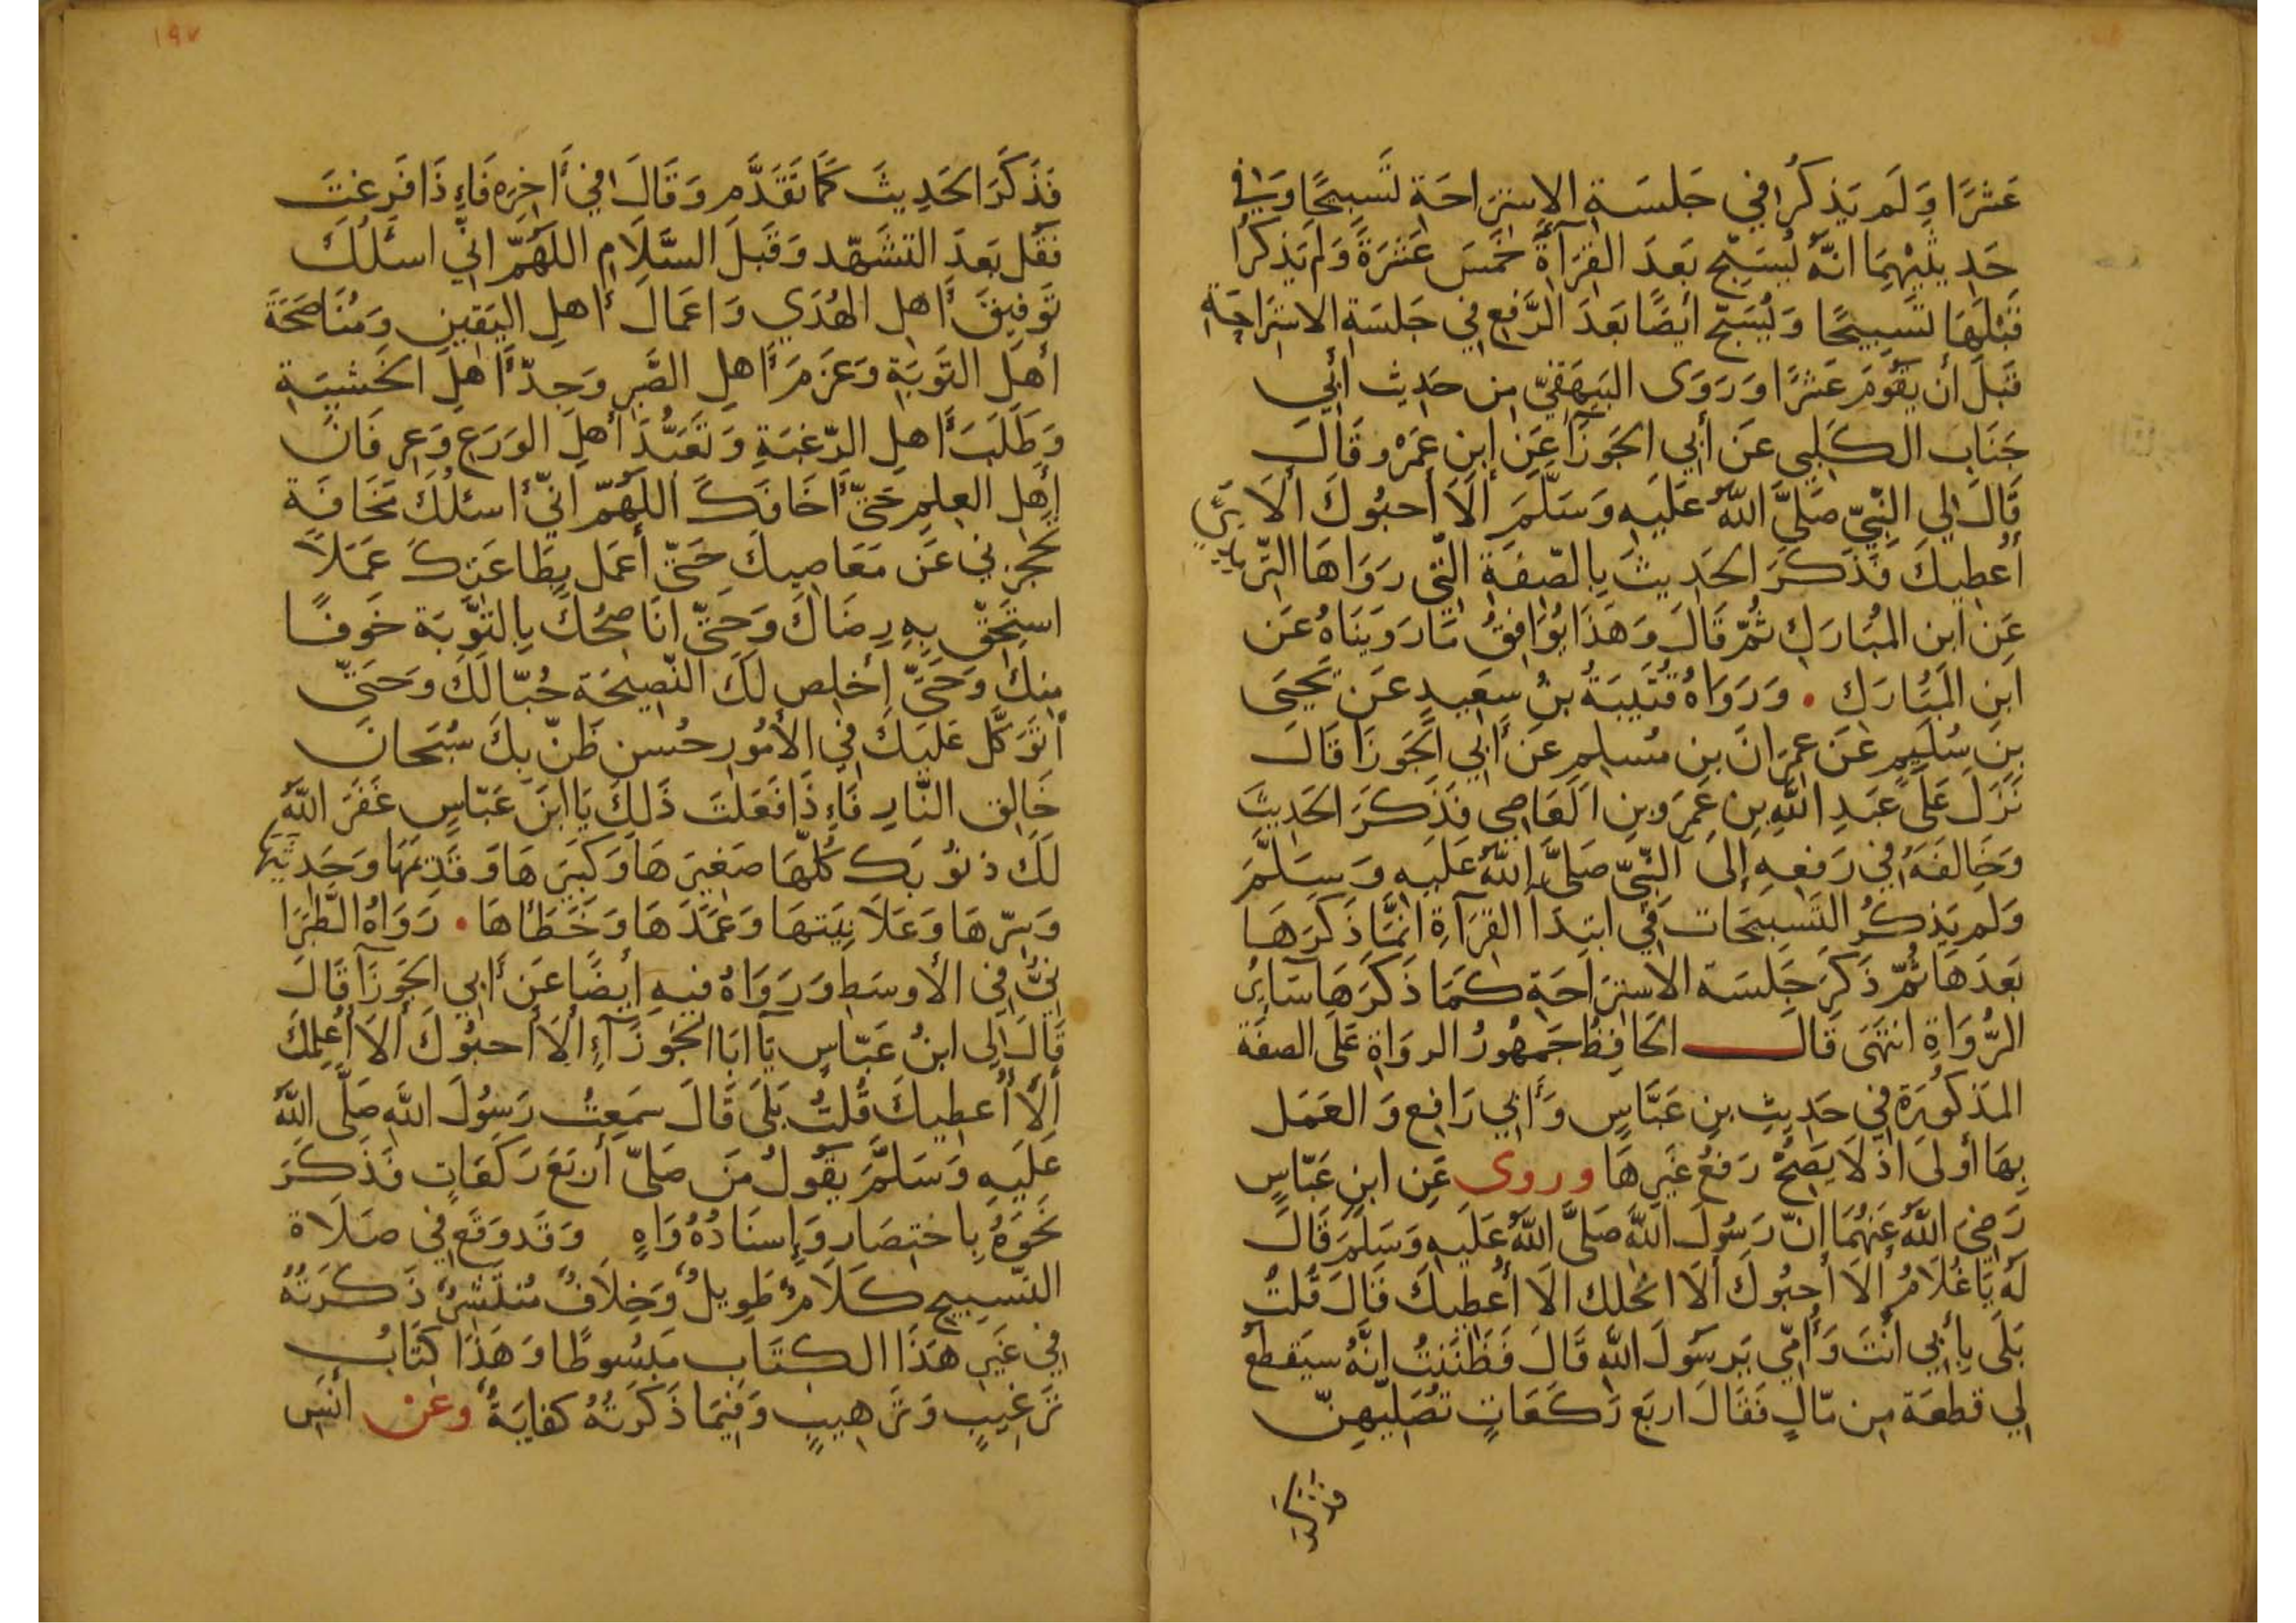 عَشْرًا وَلَم يَذكُرَا في جَلسَةِ الاِستِرَاحَةِ تَسبِيحًا وَفي
حَدِيثَيْهِمَا انّهُ يُسَبِّح بَعدَ القِرَآةِ خَمسَ عَشَرَةَ وَلَم يَذكُرَا
قَبْلَهَا تَسبِيحًا وَيُسَبِّح ايضًا بَعدَ الرَّفعِ في جَلسَةِ الاستِرَاحَةِ
قَبلَ أن يَقُومَ عَشرًا وَرَوَى البَيهَقِيّ مِن حَدِيث أبي
جَنَاب الكَلبِي عَن أبي الجَوزَآ عَن ابن عَمرو قَالَ
قَالَ لِي النّبِيّ صَلىَّ اللهُ عَلَيهِ وَسَلّمَ ألَا أحبُوكَ ألَا
أعْطِيكَ فَذَكَرَ الحَدِيثَ بِالصّفَةِ التّي رَوَاهَا التّرمِذِيّ
عَن ابن المُبَارَكِ ثُمّ قَالَ وَهَذَا يُوَافِقُ مَا رَوَينَاهُ عَن
ابنِ المُبَارَكِ • وَرَوَاهُ قُتَيبَةُ بنُ سَعِيدٍ عَن يَحيَى
بنِ سُلَيمٍ عَن عِمرَانَ بنِ مُسلِمٍ عَن أبي الجَوزَا قَالَ
نَزَلَ عَلىَ عَبدِ اللهِ بنِ عَمرَو بنِ العَاصِي فَذَكَرَ الحَدِيثَ
وَخَالَفَهُ في رَفعِهِ إلىَ النّبِيّ صَلىَّ اللهُ عَلَيهِ وَسَلَّمَ
وَلَم يَذكُرُ التّسبِيحَات في ابتِدَآ القِرَآةِ انمَّا ذَكَرَهَا
بَعدَهَا ثُمّ ذَكَرَ جَلسَة الاستِرَاحَةِ كَمَا ذَكَرَهَا سَايِرُ
الرُّوَاةِ انتَهَى قَالَ الحَافِظُ جَمهُورُ الروَاةِ عَلَى الصفَة
المَذكُورَة في حَدِيثِ بنِ عَبَّاسٍ وَأبي رَافِع وَالعَمَل
بِهَا أولىَ اذ لَا يَصِحُّ رَفعُ غَيرِهَا وروى عَن ابن عَبّاسٍ
رَضِيَ اللهُ عَنهُمَا انّ رَسُولَ اللهِ صَلىَّ اللهُ عَلَيهِ وَسَلّمَ قَالَ
لَهُ يَا غُلَامُ ألَا أحبُوكَ ألَا انحَلك الَا أعْطِيكَ قَالَ قُلتُ
بَلَى بِأبي أنتَ وَأمّي يَرسُولَ اللهِ قَالَ فَظَنَنتُ انّهُ سَيَقطَعُ
لِي قطعَة مِن مّالٍ فَقَالَ اربَع رَكَعَاتٍ تُصَلّيهِنّ
فذكر
١٩٧
فَذَكَرَ الحَدِيثَ كَمَا تَقَدَّم وَقَالَ في أخِرِه فَإِذَا فَرَغتَ
فَقُل بَعدَ التشَهّد وَقَبلَ السَّلَامِ اللهُمّ انّي اسئَلُكَ
تَوفِيقَ أهلِ الهُدَي وَاعمَالَ أهلِ اليَقِينِ وَمُنَاصَحَةَ
أهلِ التَوبَةِ وَعَزمَ أهلِ الصَّبرِ وَجِدّ أهلِ الخَشيَةِ
وَطَلَبَ أهلِ الرّغبَةِ وَتَعَبُّدَ أهلِ الوَرَعِ وَعِرفَانَ
أهلِ العِلمِ حَتّى أخَافَكَ اللهُمّ انيّ أسئلُكَ مَخَافَة
تَحجُزني عَن مَعَاصِيكَ حَتّى أعمَل بِطَاعَتِكَ عَمَلًا
استَحِقّ بِهِ رِضَاكَ وَحَتّى انَاصِحُكَ بِالتوَّبَة خَوفًا
مِنكَ وَحَتَّى أخلِص لَكَ النّصِيحَة حُبّا لَكَ وَحَتىّ
أتَوَكَّل عَلَيكَ في الأمُورِ حُسن ظَنّ بِكَ سُبحَانَ
خَالِق النَّارِ فَإِذَا فَعَلتَ ذَلِكَ يَا ابنَ عَبّاسٍ غَفَرَ اللهُ
لَكَ ذنُوبَكَ كُلّهَا صَغِيرَهَا وَكَبِيرَهَا وَقَدِيمَهَا وَحَدِيثَهَا
وَسِرّهَا وَعَلَانِيَتهَا وَعَمدَهَا وَخَطَأهَا • رَوَاهُ الطَّبَرَا
نيُّ في الأوسَطِ وَرَوَاهُ فِيهِ أيضًا عَن أبي الجَوزَآ قَالَ
قَالَ لِي ابنُ عَبّاسٍ يَآ ابَا الجَوزَآءِ ألَا أحبُوكَ ألَا أعلِمكَ
ألَا أعطِيكَ قُلتُ بَلىَ قَالَ سَمِعتُ رَسُولَ اللهِ صَلَّى اللهُ
عَلَيهِ وَسَلَّمَ يَقُولُ مَن صَلىّ أربَعَ رَكَعَاتٍ فَذَكَرَ
نَحوَهُ بِاختِصَارٍ وَإسنَادُهُ وَاهٍ وَقَد وَقَع في صَلَاة
التّسبِيحِ كَلَامٌ طَوِيلٌ وَخِلَافٌ مُنتَشِرٌ ذَكَرتُهُ
في غَيرِ هَذَا الكِتَابِ مَبسُوطًا وَهَذَا كِتَابُ
تَرغِيبٍ وَتَرهِيبٍ وَفِيمَا ذَكَرتُهُ كفايَةٌ وعن أنَسِ